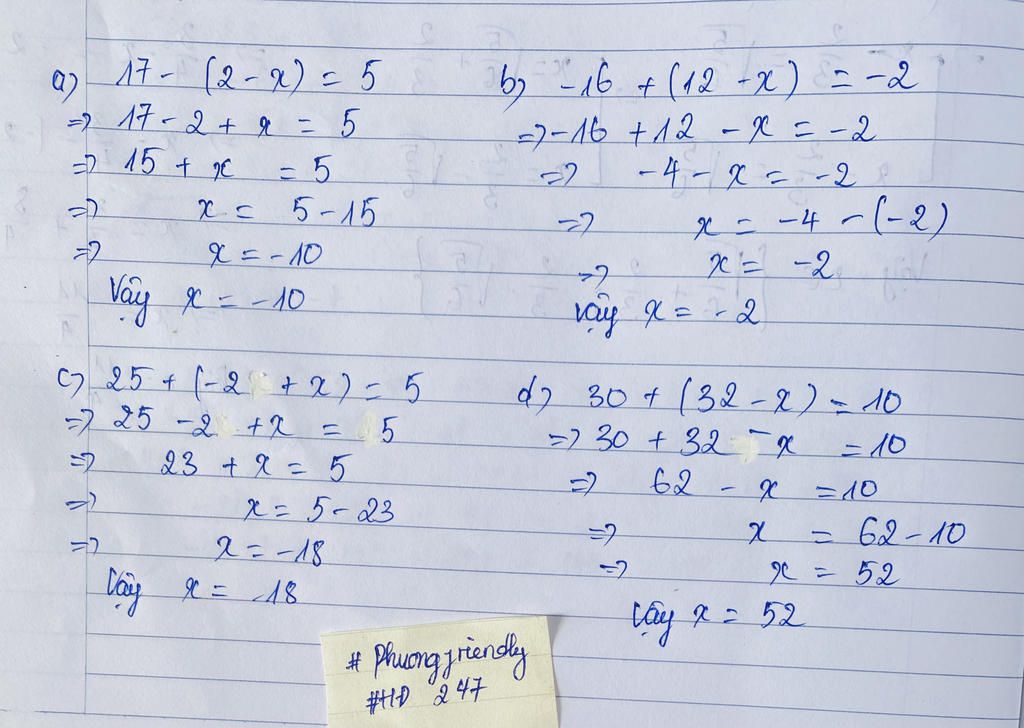 a) 17 - (2 - x) = 5
=> 17 - 2 + x = 5
=> 15 + x = 5
=> x = 5 - 15
=> x = -10
Vậy x = -10
b) -16 + (12 - x) = -2
=> -16 + 12 - x = -2
=> -4 - x = -2
=> x = -4 - (-2)
=> x = -2
Vậy x = -2
c) 25 + (-2 + x) = 5
=> 25 - 2 + x = 5
=> 23 + x = 5
=> x = 5 - 23
=> x = -18
Vậy x = -18
d) 30 + (32 - x) = 10
=> 30 + 32 - x = 10
=> 62 - x = 10
=> x = 62 - 10
=> x = 52
Vậy x = 52
# Phuongfriendly
#HD 247